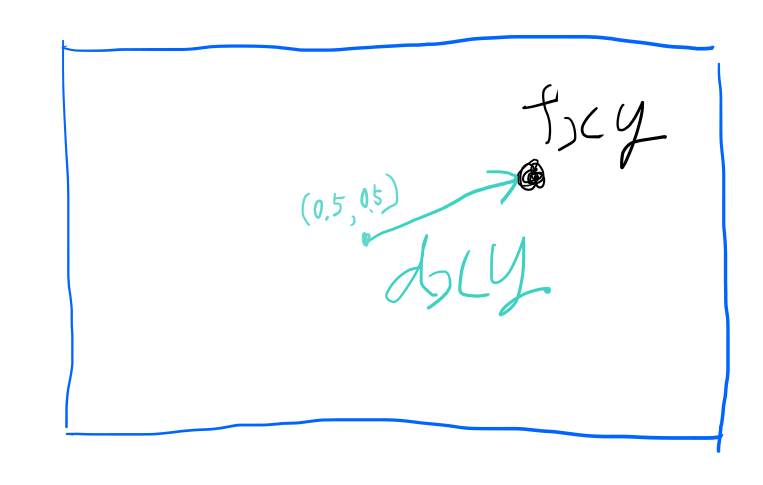 fxy
(0.5, 0.5)
dxy